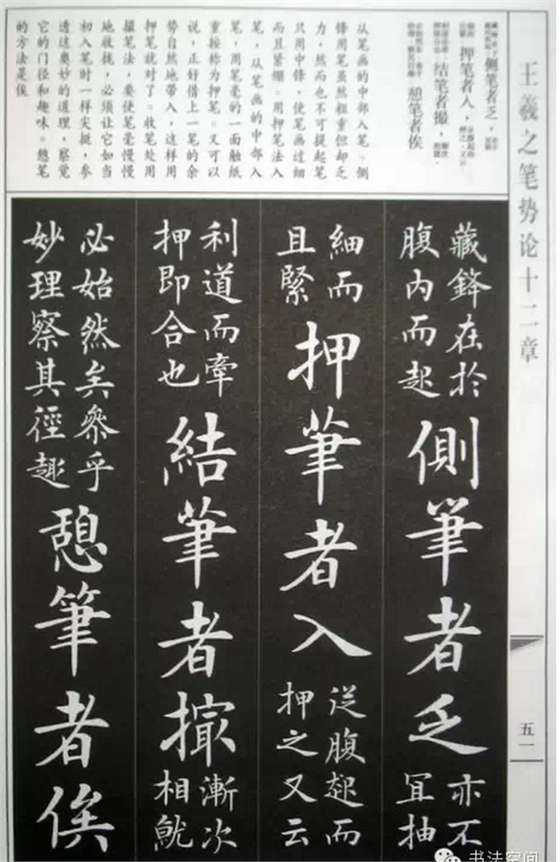 王羲之笔势论十二章
侧笔者乏,
押笔者入,
结笔者撮,
憩笔者俟
从笔画的中部入笔。侧
锋用笔虽然粗重但却乏
力,然而也不可提起笔
只用中锋,使笔画过细
而且紧绷。用押笔法入
笔,从笔画的中部入
笔,用笔毫的一面触纸
重按称为押笔。又可以
说,正好借上一笔的余
势自然地带入,这样用
押笔就对了。收笔处用
撮笔法,要使笔毫慢慢
地收拢,必须让它如当
初入笔时一样尖挺,参
透这奥妙的道理,察觉
它的门径和趣味。憩笔
的方法是俟
藏鋒在於
腹内而起
側筆者乏
亦不
宜抽
細而
且緊
押筆者入
從腹起而
押之又云
利道而牽
押即合也
結筆者撮
漸次
相就
必始然矣參乎
妙理察其徑趣
憩筆者俟
五一
书法空间